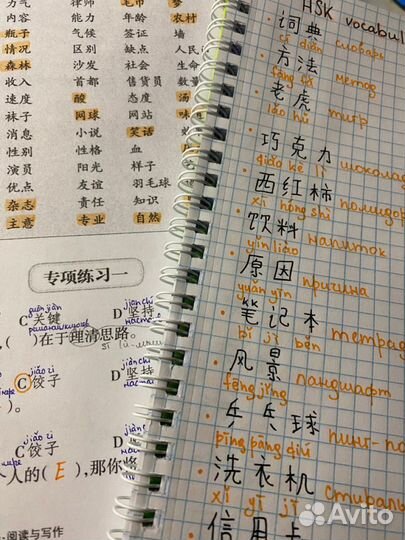 力气 律师 毛巾 梦
内容 能力 年龄 农村
瓶子 气候 签证 墙
情况 区别 缺点 人民
森林 沙发 社会 生命
收入 首都 售货员 数量
速度 酸 态度 汤
袜子 网球 网站 味
消息 小说 笑话
性别 性格 血
演员 阳光 样子
优点 友谊 羽毛球
杂志 责任 知识
主意 专业 自然
专项练习一
guān jiàn jiān chí
C 关键 D 坚持
，( )在于理清思路。
jiǎo zi jiān chí
C 饺子 D 坚持
)。
jiǎo zi jiān chí
C 饺子 D 坚持
人的( E )，那你将
·阅读与写作
HSK vocabul
· 词典
cí diǎn словарь
· 方法
fāng fǎ метод
· 老虎
lǎo hǔ тигр
· 巧克力
qiǎo kè lì шоколад
· 西红柿
xī hóng shì помидор
· 饮料
yǐn liào напиток
· 原因
yuán yīn причина
· 笔记本
bǐ jì běn тетрад
· 风景
fēng jǐng ландшафт
· 乒乓球
pīng pāng qiú пинг-по
· 洗衣机
xǐ yī jī стираль
· 信用卡
Avito